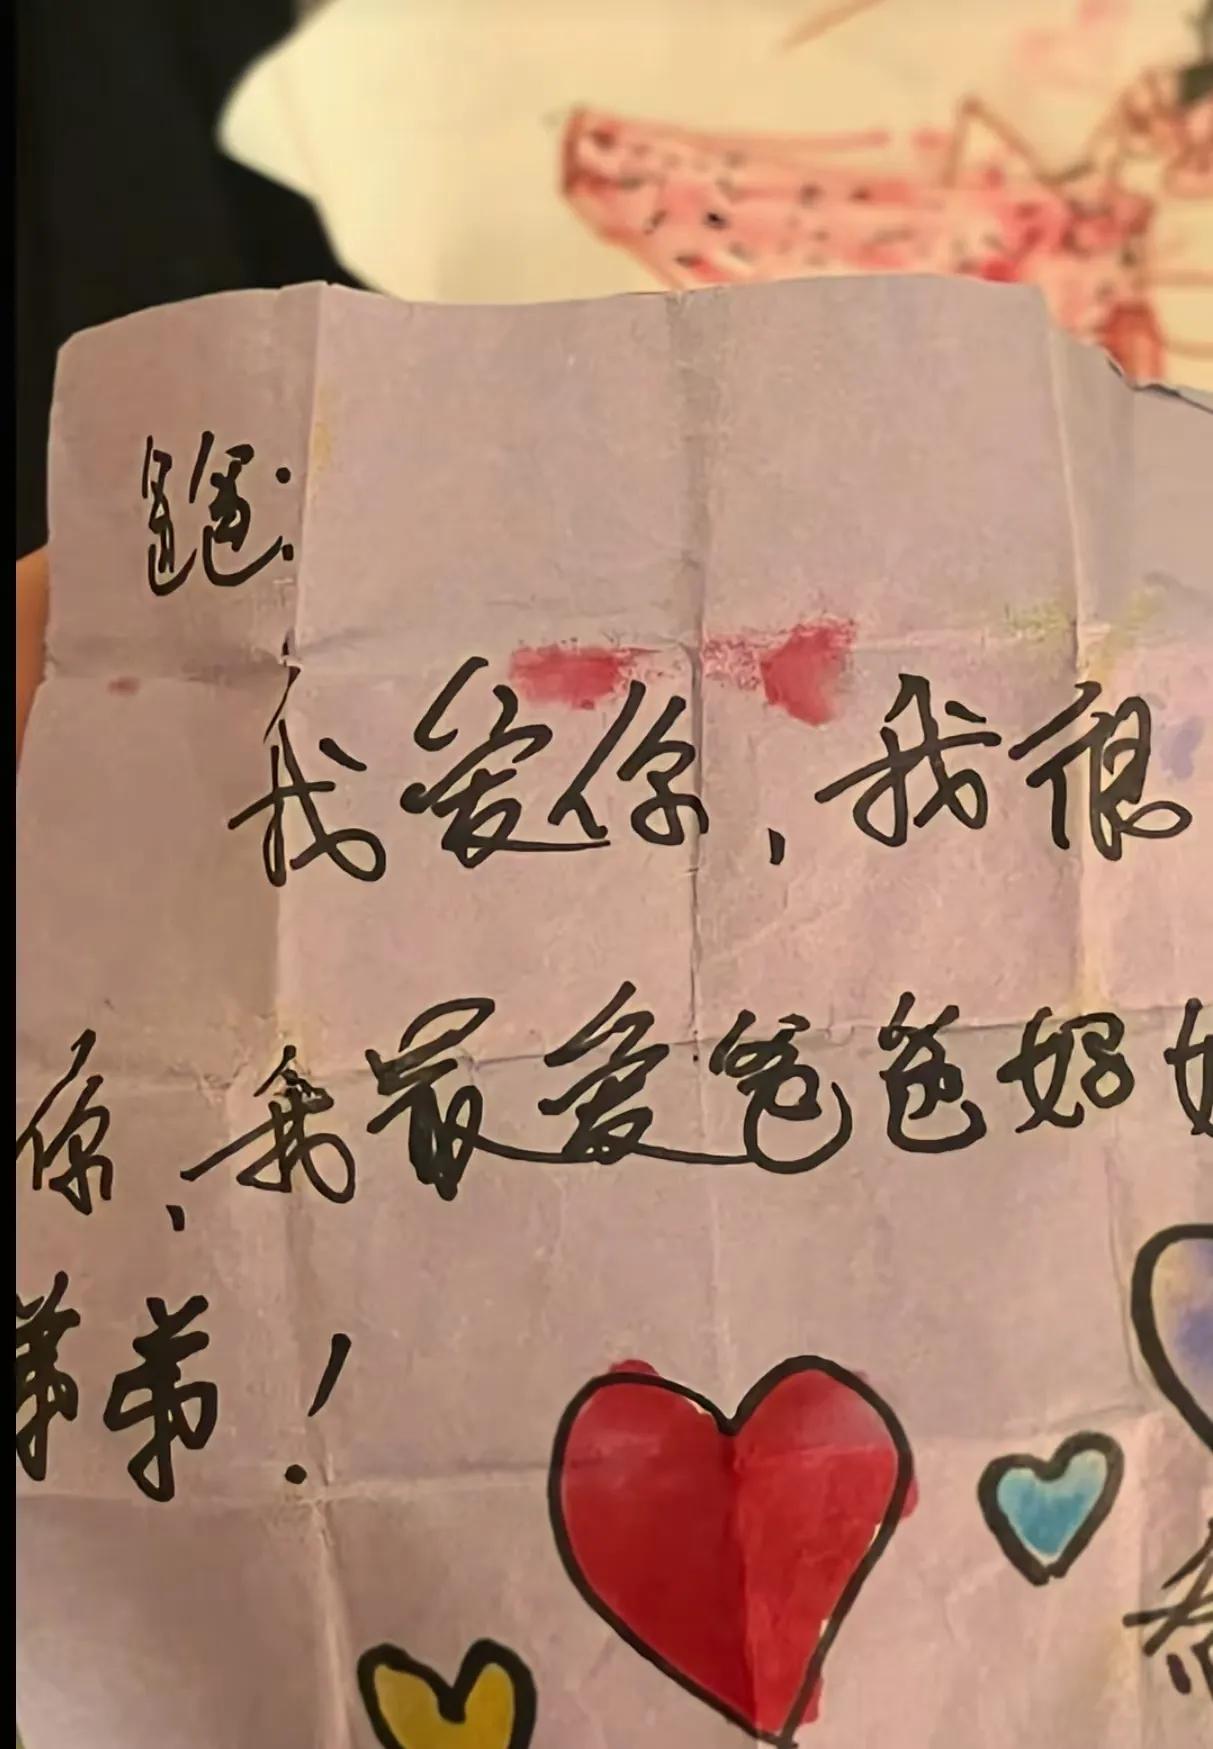 爸爸:
我爱你,我很
你,我最爱爸爸妈
弟弟!